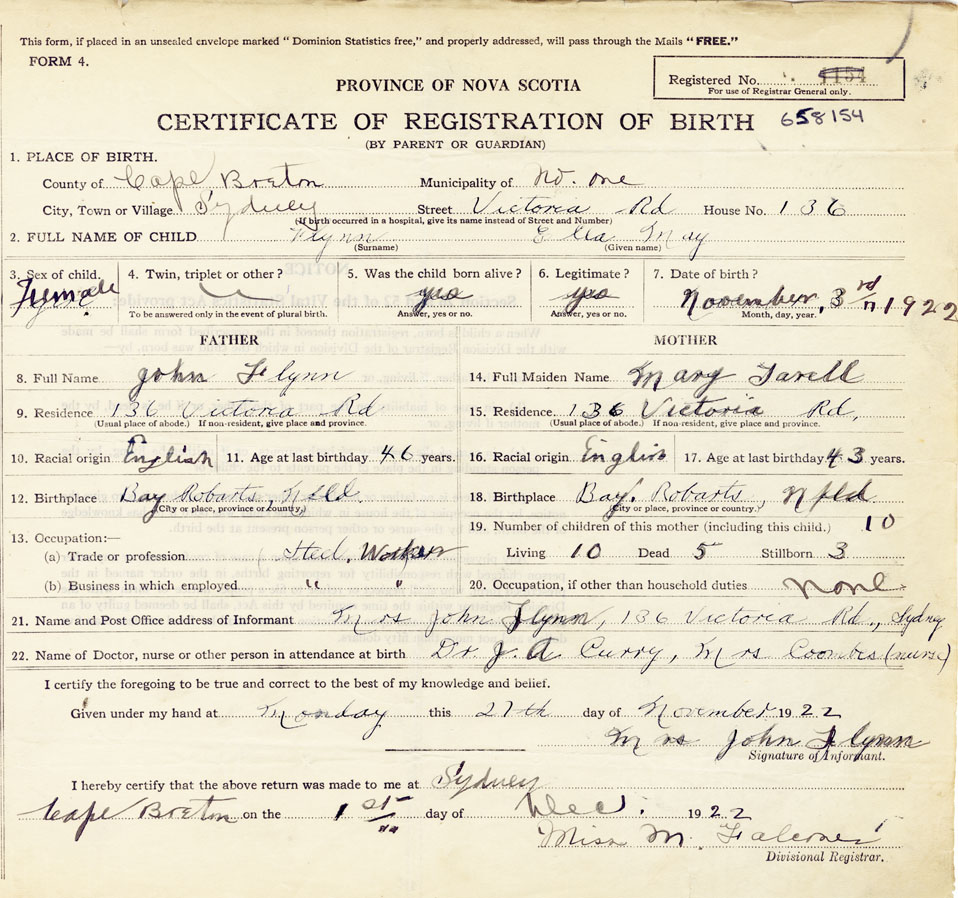 This form, if placed in an unsealed envelope marked "Dominion Statistics free," and properly addressed, will pass through the Mails "FREE."
FORM 4.
PROVINCE OF NOVA SCOTIA
Registered No. 4154
For use of Registrar General only.
CERTIFICATE OF REGISTRATION OF BIRTH 658154
(BY PARENT OR GUARDIAN)
1. PLACE OF BIRTH.
County of Cape Breton Municipality of No. one
City, Town or Village Sydney Street Victoria Rd House No. 136
(If birth occurred in a hospital, give its name instead of Street and Number)
2. FULL NAME OF CHILD Flynn Ella May
(Surname) (Given name)
3. Sex of child. 4. Twin, triplet or other? 5. Was the child born alive? 6. Legitimate? 7. Date of birth?
Female yes yes November, 3rd 1922
To be answered only in the event of plural birth. Answer, yes or no. Answer, yes or no. Month, day, year.
FATHER MOTHER
8. Full Name John Flynn 14. Full Maiden Name Mary
9. Residence 136 Victoria Rd 15. Residence. 136 Victoria Rd,
(Usual place of abode.) If non-resident, give place and province. (Usual place of abode.) If non-resident, give place and province.
10. Racial origin English 11. Age at last birthday 46 years. 16. Racial origin English 17. Age at last birthday 43 years.
12. Birthplace Bay Robarts, Nfld. 18. Birthplace Bay. Robarts, Nfld
(City or place, province or country.) (City or place, province or country.)
19. Number of children of this mother (including this child.) 10
13. Occupation:—
(a) Trade or profession Worker Living 10 Dead 5 Stillborn 3
(b) Business in which employed " " 20. Occupation, if other than household duties none
21. Name and Post Office address of Informant Mrs John Flynn, 136 Victoria Rd., Sydney
22. Name of Doctor, nurse or other person in attendance at birth Dr. J. A Curry, Mrs Coombs (nurse)
I certify the foregoing to be true and correct to the best of my knowledge and belief.
Given under my hand at Monday this 27th day of November 1922
Mrs John Flynn
Signature of Informant.
I hereby certify that the above return was made to me at Sydney
Cape Breton on the 1st day of Dec. 1922
Miss M.
Divisional Registrar.